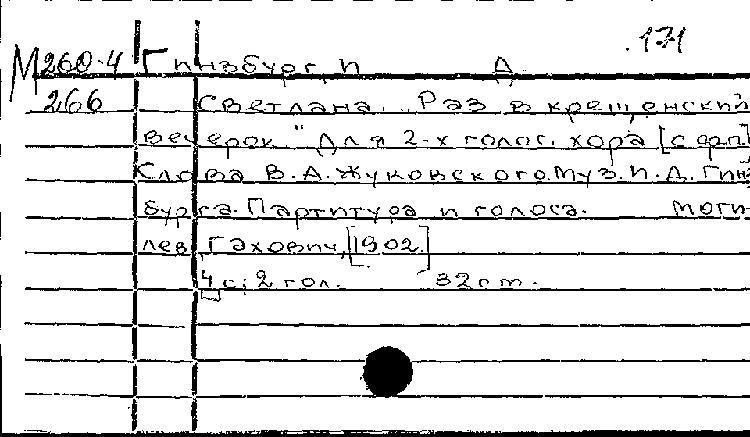 171
М260-4 Гинзбург, И Д.
266 Светлана. "Раз в крещенский
вечерок" Для 2-х голос. хора [с фп]
Слова В.А.Жуковского.Муз.И.Д.Гинз
бурга.Партитура и голоса. Моги
лев, Гахович, [1902.]
4 с; 2 гол. 32 см.